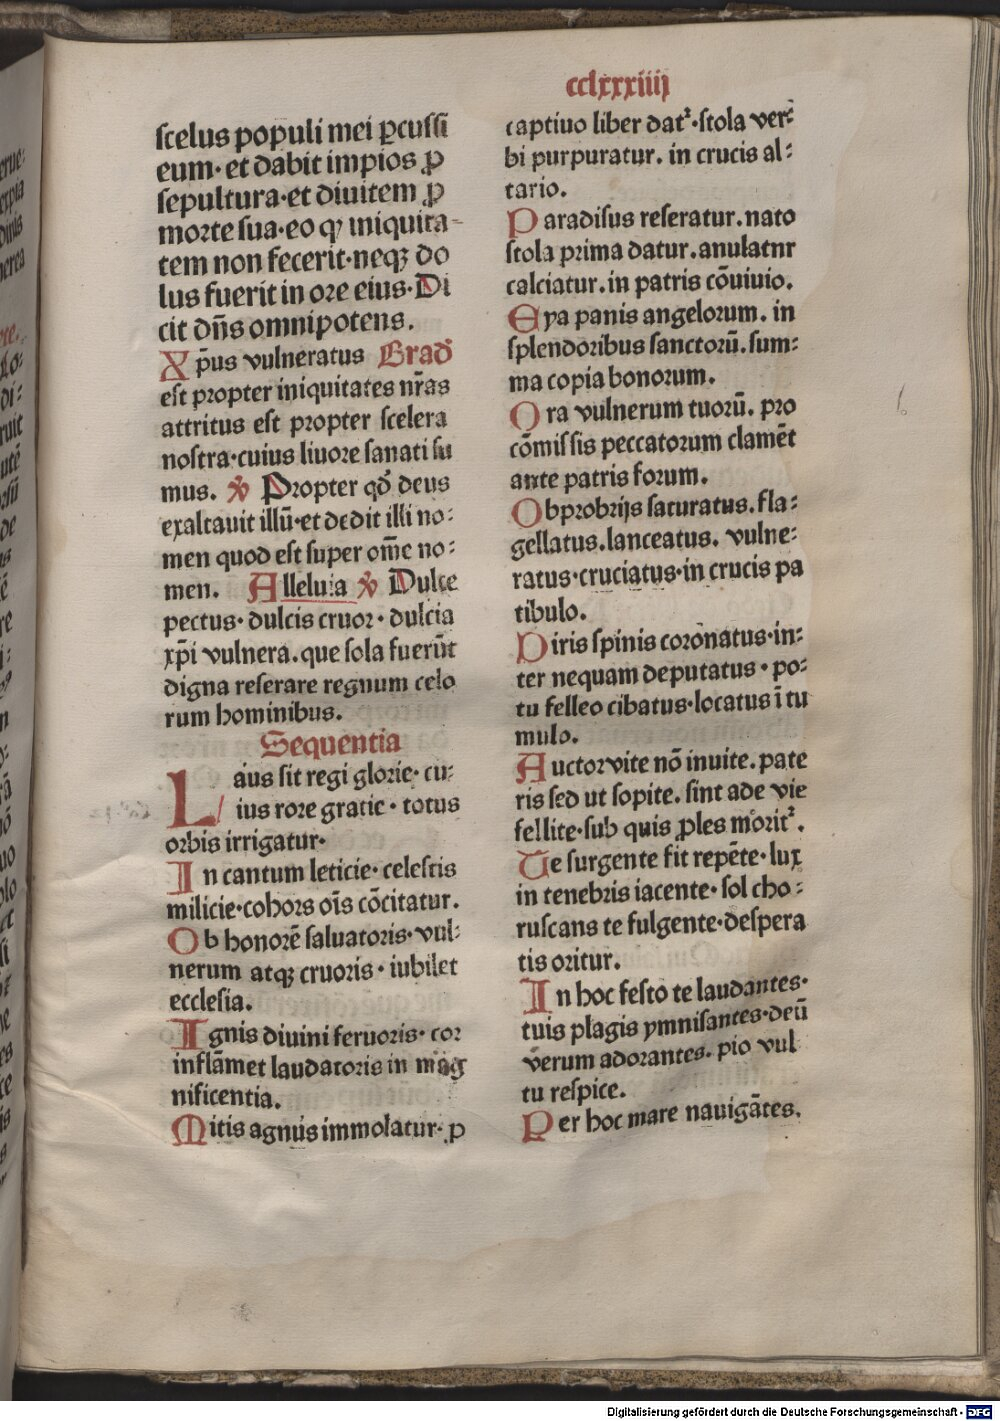 cclxxxiiij
ſcelus populi mei ꝑcuſſi
eum· et dabit impios ꝓ
ſepultura·et diuitem ꝓ
morte ſua·eo qꝫ iniquita-
tem non fecerit·neqꝫ do
lus fuerit in ore eius·Di
cit dñs omnipotens.
Xp̄us vulneratus Grad̄
eſt propter iniquitates nr̄as
attritus eſt propter ſcelera
noſtra·cuius liuore ſanati ſu
mus. ℣ Propter qd̄ deus
exaltauit illū·et dedit illi no:
men quod eſt ſuper om̄e no:
men. Alleluia ℣ Dulce
pectus· dulcis cruor· dulcia
xp̄i vulnera.que ſola fuerūt
digna reſerare regnum celo
rum hominibus.
Sequentia
Laus ſit regi glorie· cu:
ius rore gratie· totus
orbis irrigatur·
In cantum leticie· celeſtis
milicie·cohors oīs cōcitatur.
Ob honorē ſaluatoris·vul:
nerum atqꝫ cruoris· iubilet
eccleſia.
Ignis diuini feruoris· cor
inflāmet laudatoris in mag
nificentia.
Mitis agnus immolatur· ꝓ
captiuo liber datᷣ·ſtola ver:
bi purpuratur. in crucis al:
tario.
Paradiſus reſeratur.nato
ſtola prima datur.anulatnr
calciatur.in patris cōuiuio.
Eya panis angelorum. in
ſplendoribus ſanctorū.ſum:
ma copia bonorum.
Ora vulnerum tuorū. pro
cōmiſſis peccatorum clamēt
ante patris forum.
Obprobrijs ſaturatus.fla:
gellatus.lanceatus. vulne:
ratus·cruciatus·in crucis pa
tibulo.
Diris ſpinis coronatus·in:
ter nequam deputatus· po:
tu felleo cibatus·locatus ī tu
mulo.
Auctor vite nō inuite.pate
ris ſed ut ſopite. ſint ade vie
fellite·ſub quis ꝓles moritᷣ.
Te ſurgente fit repēte·lux
in tenebris iacente· ſol cho:
ruſcans te fulgente·deſpera
tis oritur.
In hoc feſto te laudantes·
tuis plagis ymniſantes·deū
verum adorantes. pio vul
tu reſpice.
Per hoc mare nauigātes.
Digitalisierung gefördert durch die Deutsche Forschungsgemeinschaft - DFG